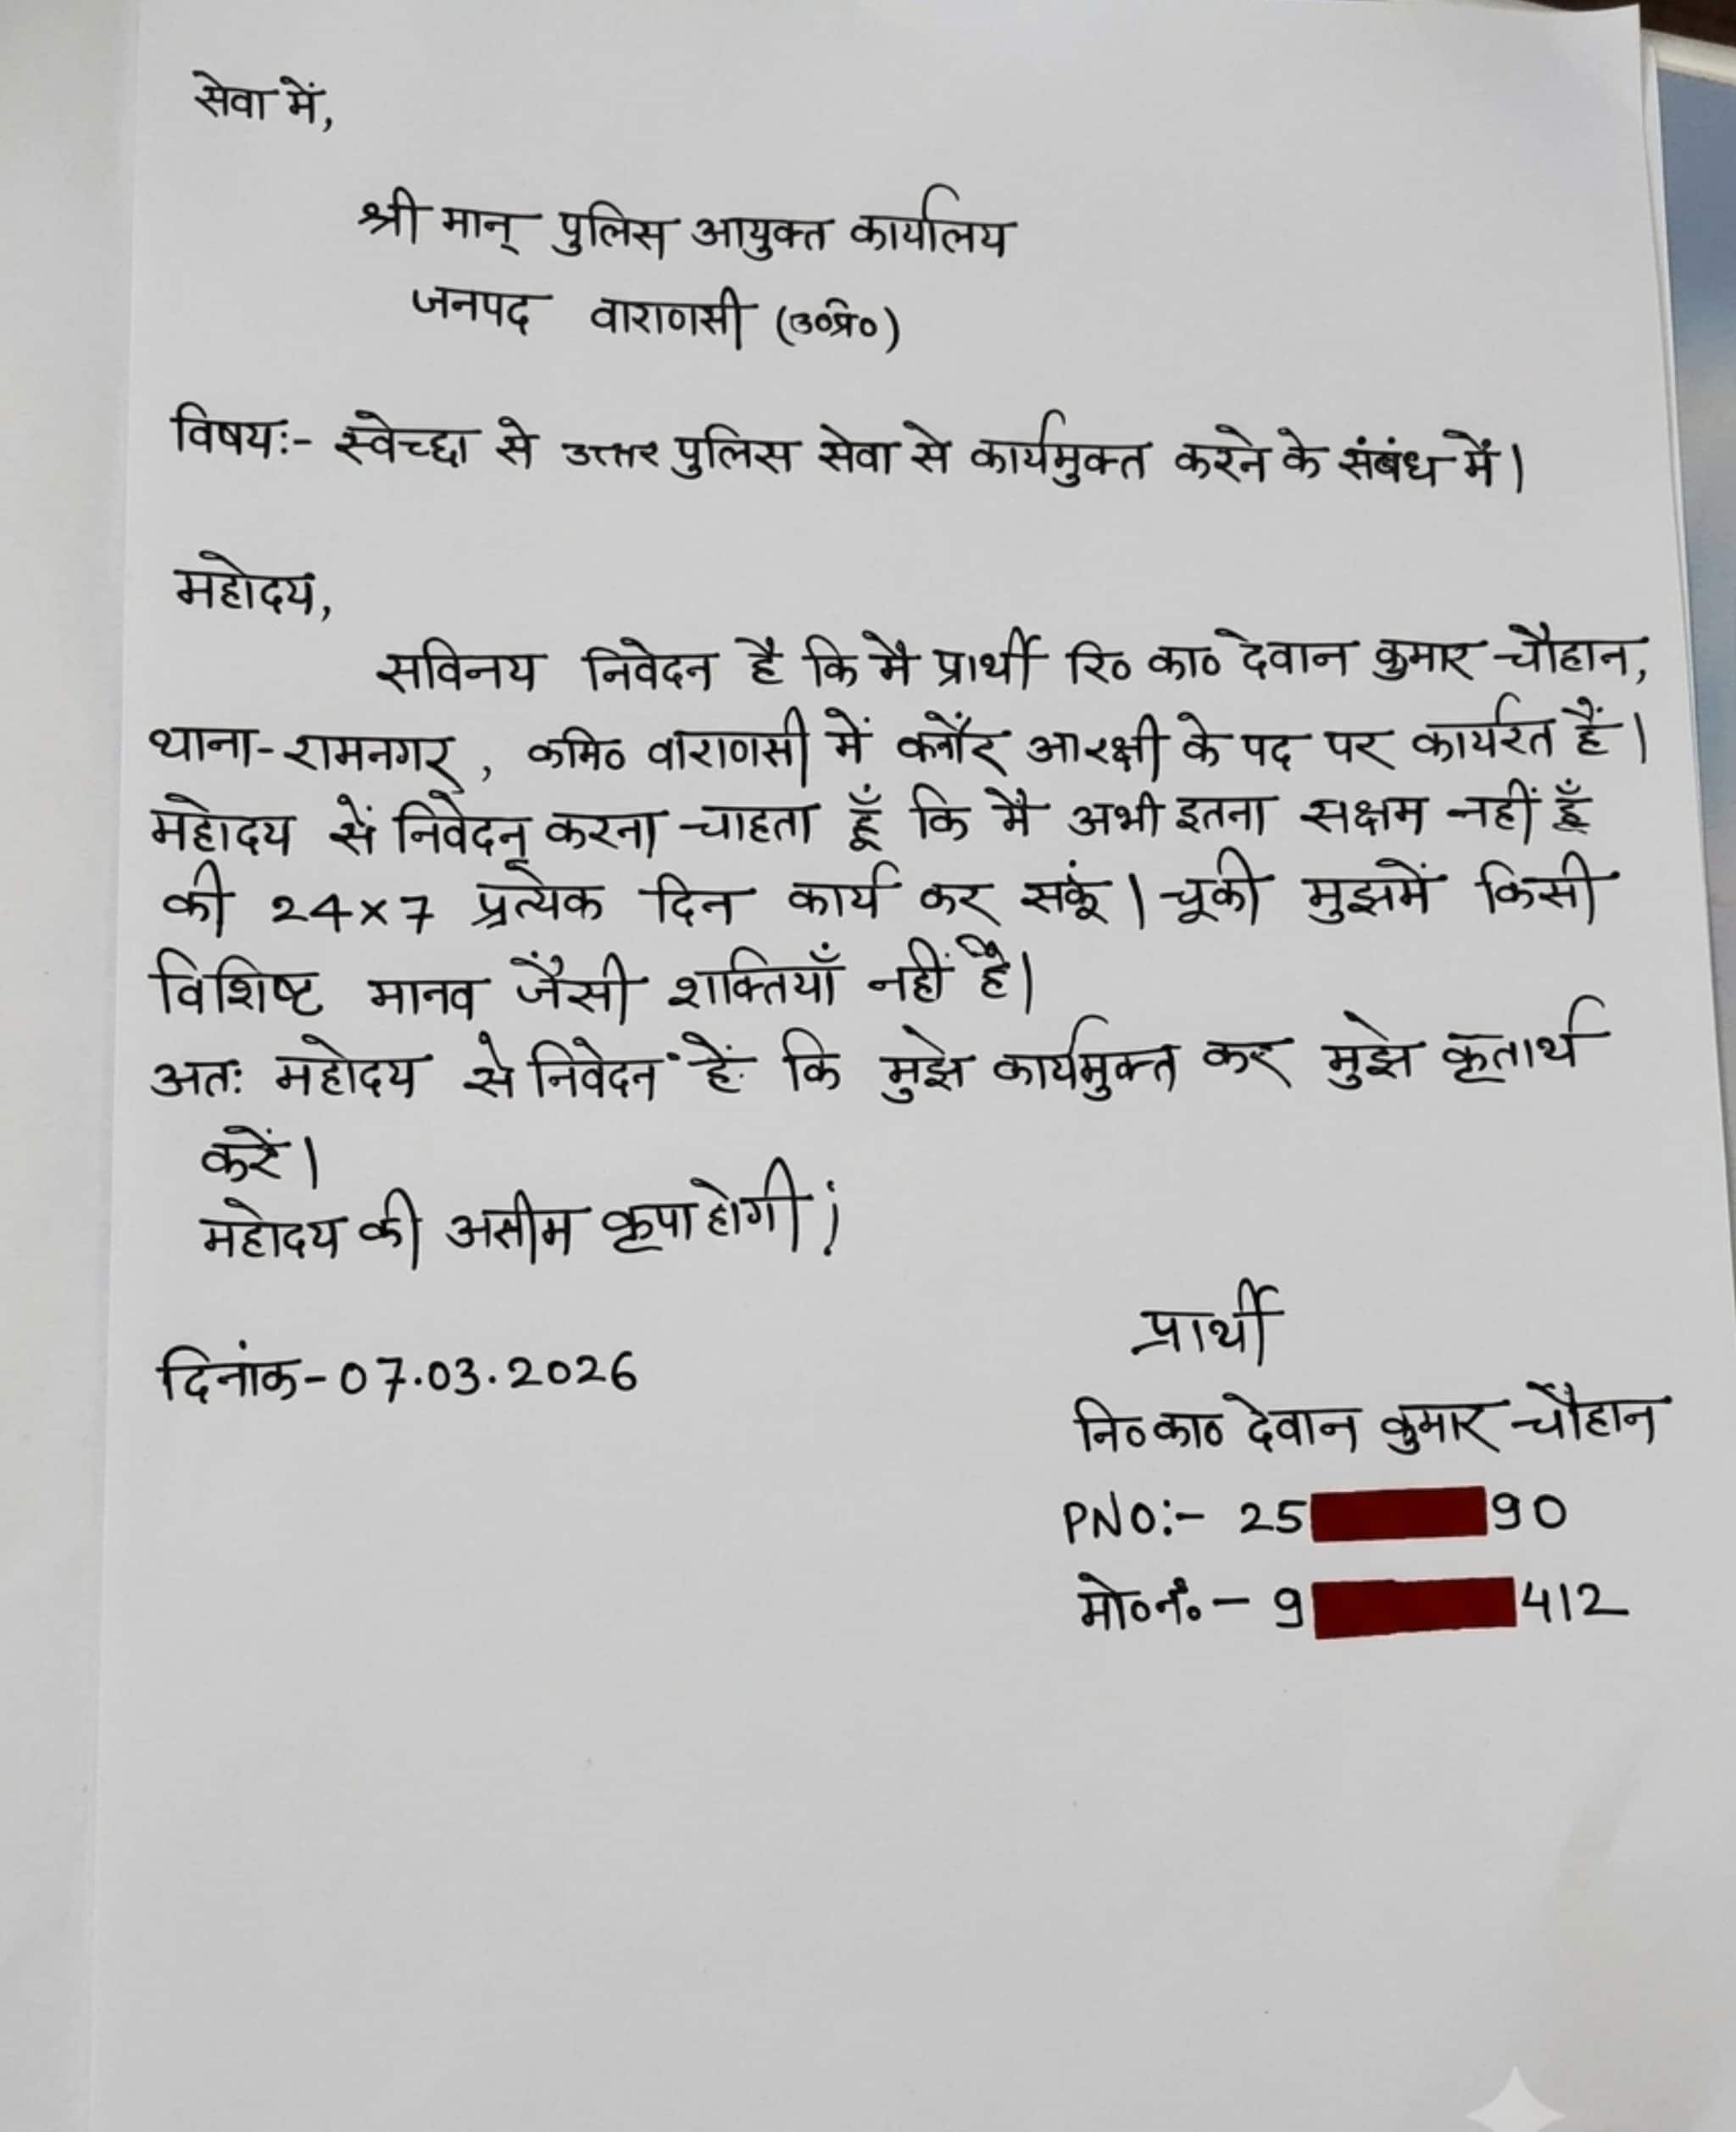 सेवा में,
श्री मान् पुलिस आयुक्त कार्यालय
जनपद वाराणसी (उ०प्र०)
विषयः- स्वेच्छा से उत्तर पुलिस सेवा से कार्यमुक्त करने के संबंध में।
महोदय,
सविनय निवेदन है कि मै प्रार्थी रि० का० देवान कुमार चौहान,
थाना-रामनगर, कमि० वाराणसी में आरक्षी के पद पर कार्यरत हैं।
महोदय सें निवेदन करना चाहता हूँ कि मै अभी इतना सक्षम नहीं हूँ
की 24x7 प्रत्येक दिन कार्य कर सकूं। चूकी मुझमें किसी
विशिष्ट मानव जैंसी शक्तियाँ नहीं है।
अतः महोदय से निवेदन हें कि मुझे कार्यमुक्त कर मुझे कृतार्थ
करें।
महोदय की असीम कृपा होगी;
प्रार्थी
दिनांक-07.03.2026
नि०का० देवान कुमार चौहान
PNO:- 25 90
मो०नं०- 9 412